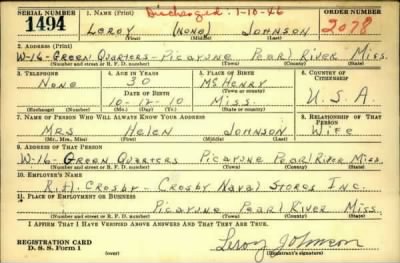 SERIAL NUMBER 1. NAME (Print) Discharged: 1-18-46 ORDER NUMBER
1494 LEROY (NONE) JOHNSON 2078
(First) (Middle) (Last)
2. ADDRESS (Print)
W-16-GREEN QUARTERS- PICAYUNE PEARL RIVER MISS.
(Number and street or R. F. D. number) (Town) (County) (State)
3. TELEPHONE 4. AGE IN YEARS 5. PLACE OF BIRTH 6. COUNTRY OF CITIZENSHIP
NONE 30 McHENRY
DATE OF BIRTH (Town or county)
10-12-10 MISS. U.S.A.
(Exchange) (Number) (Mo.) (Day) (Yr.) (State or country)
7. NAME OF PERSON WHO WILL ALWAYS KNOW YOUR ADDRESS 8. RELATIONSHIP OF THAT PERSON
MRS HELEN JOHNSON WIFE
(Mr., Mrs., Miss) (First) (Middle) (Last)
9. ADDRESS OF THAT PERSON
W-16-GREEN QUARTERS PICAYUNE PEARL RIVER MISS.
(Number and street or R. F. D. number) (Town) (County) (State)
10. EMPLOYER'S NAME
R.H. CROSBY- CROSBY NAVAL STORES INC.
11. PLACE OF EMPLOYMENT OR BUSINESS
PICAYUNE PEARL RIVER MISS.
(Number and street or R. F. D. number) (Town) (County) (State)
I AFFIRM THAT I HAVE VERIFIED ABOVE ANSWERS AND THAT THEY ARE TRUE.
REGISTRATION CARD
D. S. S. Form 1 Leroy Johnson
(Registrant's signature)